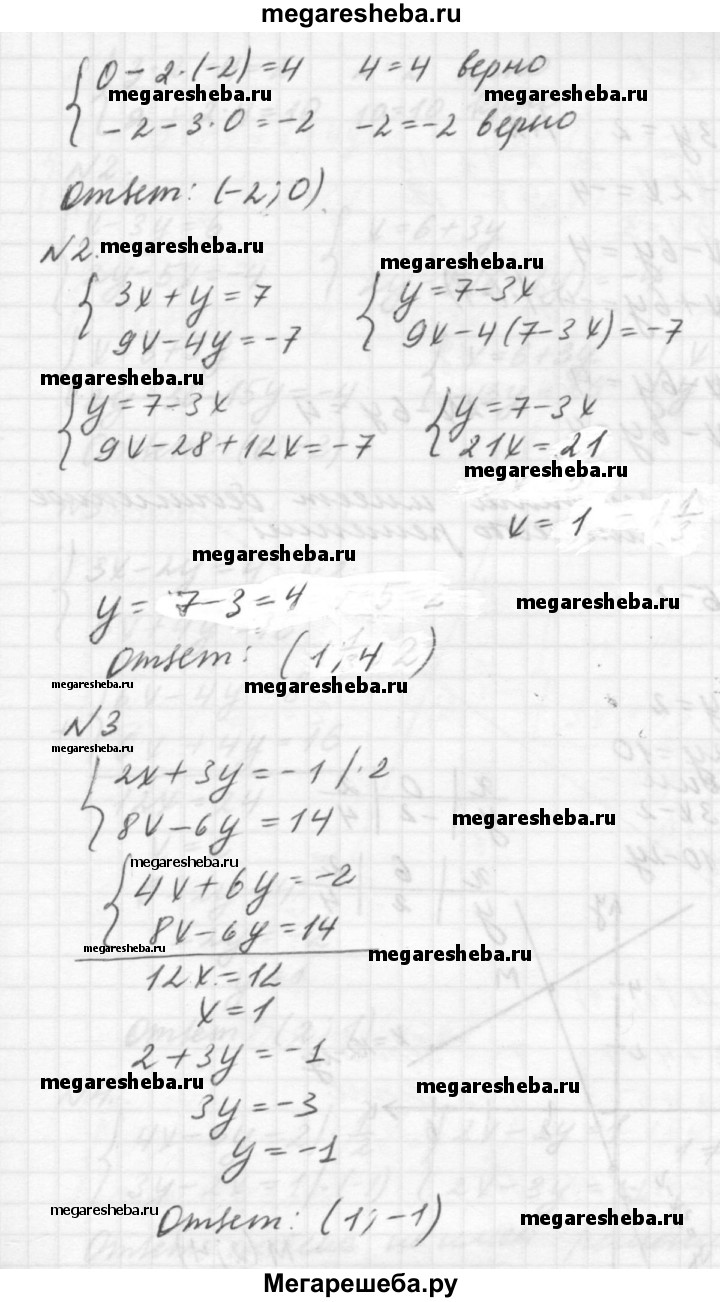 megaresheba.ru
0 - 2·(-2) = 4 4 = 4 верно
megaresheba.ru megaresheba.ru
-2 - 3·0 = -2 -2 = -2 верно
Ответ: (-2; 0)
N2. megaresheba.ru
megaresheba.ru
3x + y = 7 y = 7 - 3x
9x - 4y = -7 9x - 4(7 - 3x) = -7
megaresheba.ru
y = 7 - 3x y = 7 - 3x
9x - 28 + 12x = -7 21x = 21
megaresheba.ru
x = 1
megaresheba.ru
y = 7 - 3 = 4 megaresheba.ru
Ответ: (1; 4)
megaresheba.ru megaresheba.ru
N3
megaresheba.ru
2x + 3y = -1 /·2
8x - 6y = 14 megaresheba.ru
megaresheba.ru
4x + 6y = -2
8x - 6y = 14
megaresheba.ru megaresheba.ru
12x = 12
x = 1
2 + 3y = -1
megaresheba.ru megaresheba.ru
3y = -3
y = -1
megaresheba.ru
Ответ: (1; -1) megaresheba.ru
Мегарешеба.ру